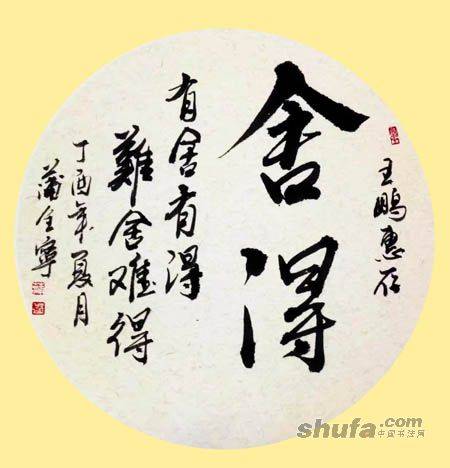 王鵬惠存
舍得
有舍有得
難舍难得
丁酉年夏月
蒲全寧
shufa.com
中国书法网